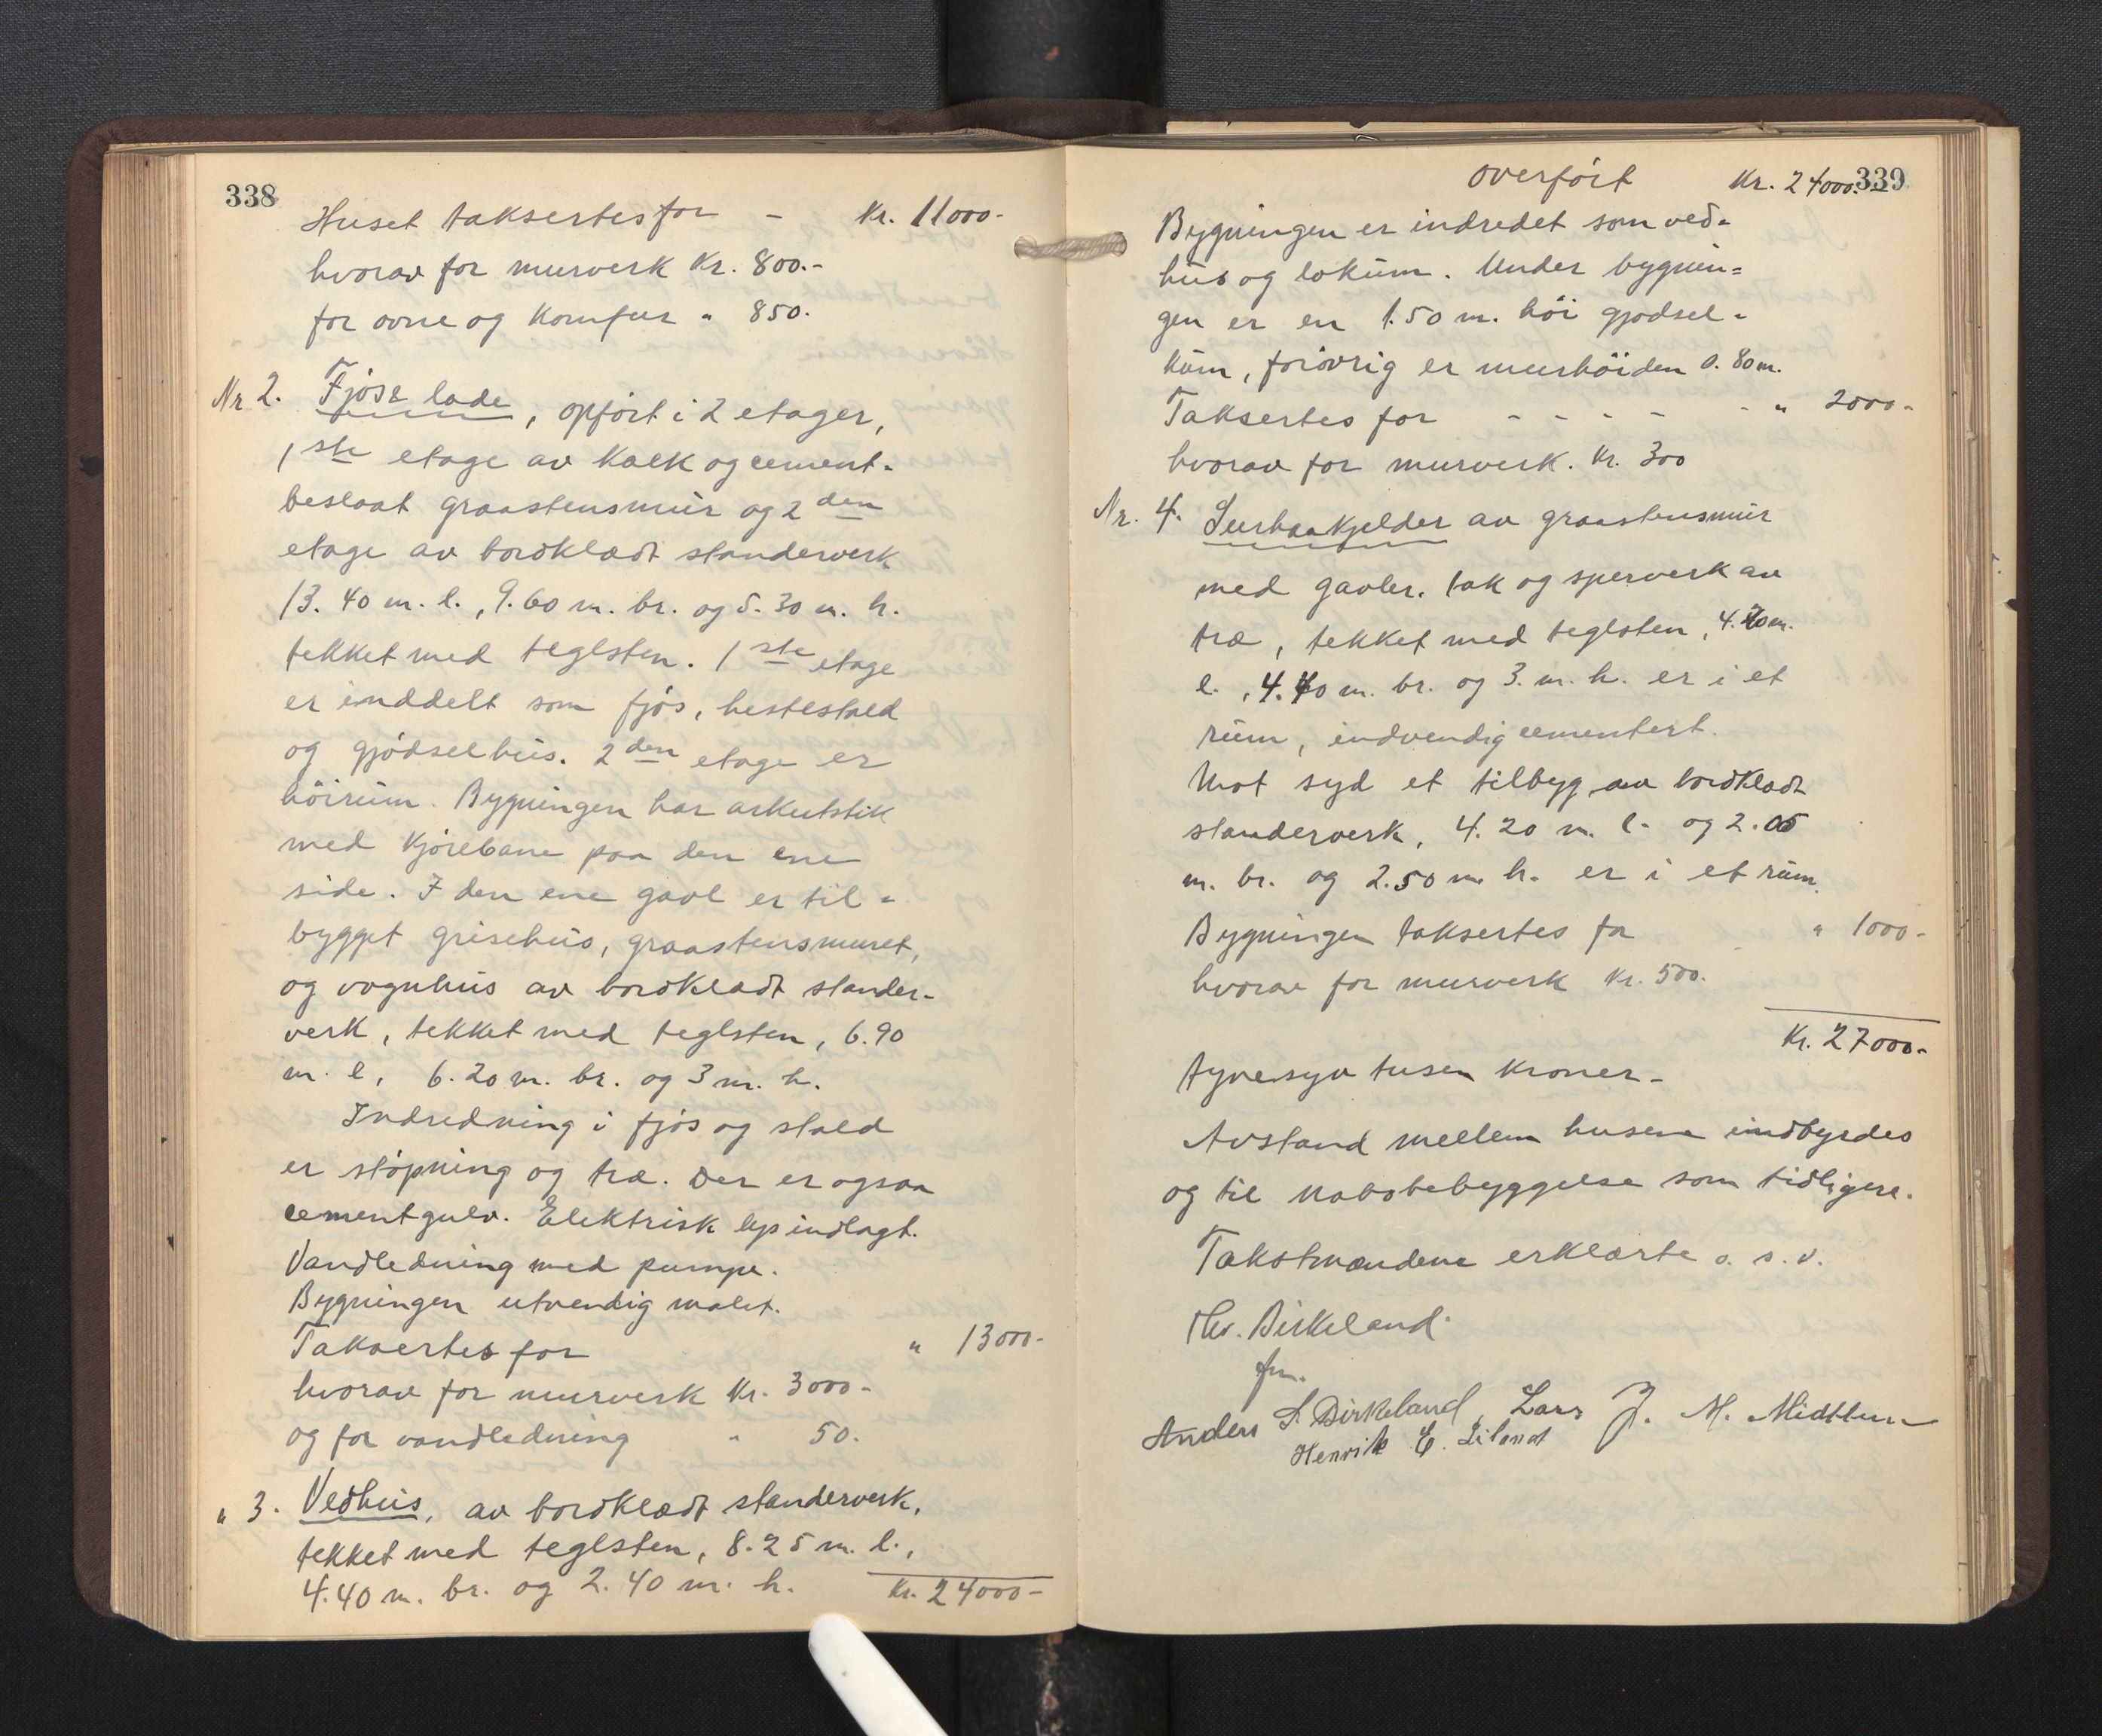 338
Huset taksertes for - Kr. 11000-
hvorav for murverk Kr. 800.-
for ovne og Komfur " 850.
Nr 2. Fjös & lade, opfört i 2 etager,
1 ste etage av Kalk og cement-
beslaat graastensmur og 2 den
etage av bordklædt standerverk
13.40 m. l., 9.60 m. br. og 5.30 m. h.
tekket med teglsten. 1 ste etage
er inddelt som fjös, hestestald
og gjödselhus. 2 den etage er
höirum. Bygningen har arkutstik
med Kjörebane paa den ene
side. I den ene gavl er til-
bygget grisehus, graastensmuret,
og vognhus av bordklædt stander-
verk, tekket med teglsten, 6.90
m. l, 6.20 m. br. og 3 m. h.
Indredning i fjös og stald
er stöpning og træ. Der er ogsaa
cementgulv. Elektrisk lys indlagt.
Vandledning med pumpe.
Bygningen utvendig malet.
Taksertes for " 13000-
hvorav for murverk Kr. 3000-
og for vandledning " 50.
" 3. Vedhus, av bordklædt standerverk,
tekket med teglsten, 8.25 m. l.,
4.40 m. br. og 2.40 m. h. Kr. 24000-
339
overfört Kr. 24000.-
Bygningen er indredet som ved-
hus og lokum. Under bygnin=
gen er en 1.50 m. höi gjödsel-
kum, forövrig er murhöiden 0.80 m.
Taksertes for - - - - - " 2000-
hvorav for murverk. Kr. 300
Nr. 4. Surhaakjelder av graastensmur
med gavler. tak og sperverk av
træ, tekket med teglsten, 4.70 m.
l., 4.40 m. br. og 3. m. h. er i et
rum, indvendig cementert.
Mot syd et tilbyg av bordklædt
standerverk, 4.20 m. l. og 2.05
m. br. og 2.50 m. h. er i et rum.
Bygningen taksertes for - " 1000-
hvorav for murverk Kr. 500.
Kr. 27000-
tyvesyv tusen Kroner-
Avstand mellem husene indbyrdes
og til nabobebyggelse som tidligere.
Takstmændene erklærte o. s. v.
Ths. Birkeland
fm.
Anders S. Birkeland, Lars J. M. Midttun
Henrik E. Liland